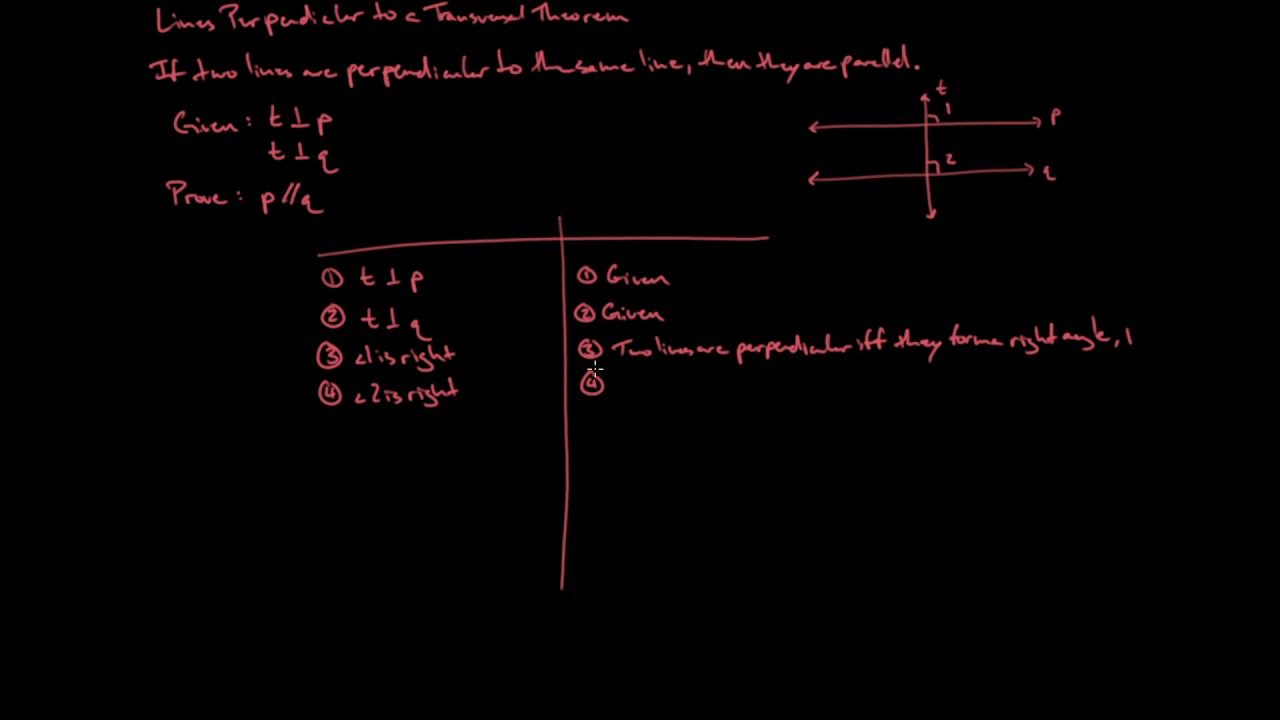 Lines Perpendicular to a Transversal Theorem
If two lines are perpendicular to the same line, then they are parallel.
Given: t ⊥ p
t ⊥ q
Prove: p // q
t
1
p
2
q
① t ⊥ p
① Given
② t ⊥ q
② Given
③ ∠1 is right
③ Two lines are perpendicular iff they form a right angle, 1
④ ∠2 is right
④